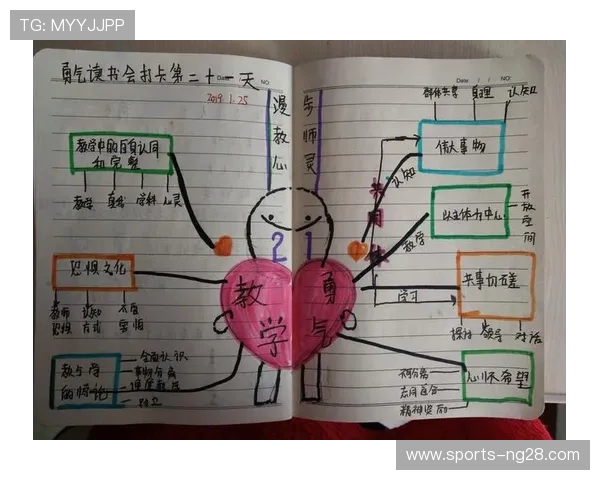 TG: MYYJJPP
勇气读书会打卡第二十一天
2019.1.25
Date: / / NO:
Date: / / NO:
漫步
教师
心灵
教学中的自身认同和完整
教学 自我 学科 心灵
恐惧文化
教师恐惧
认知方式
不再害怕
教与学的悖论
全面认识
事物分离
21
教学
勇气
共同体
群体共享 真理 认知
伟大事物
认知
以主体为中心
开放空间
教学
共事切磋
学习
探讨 领导 对话
心怀希望
不再分离
志同道合
精神奖励
www.sports-ng28.com